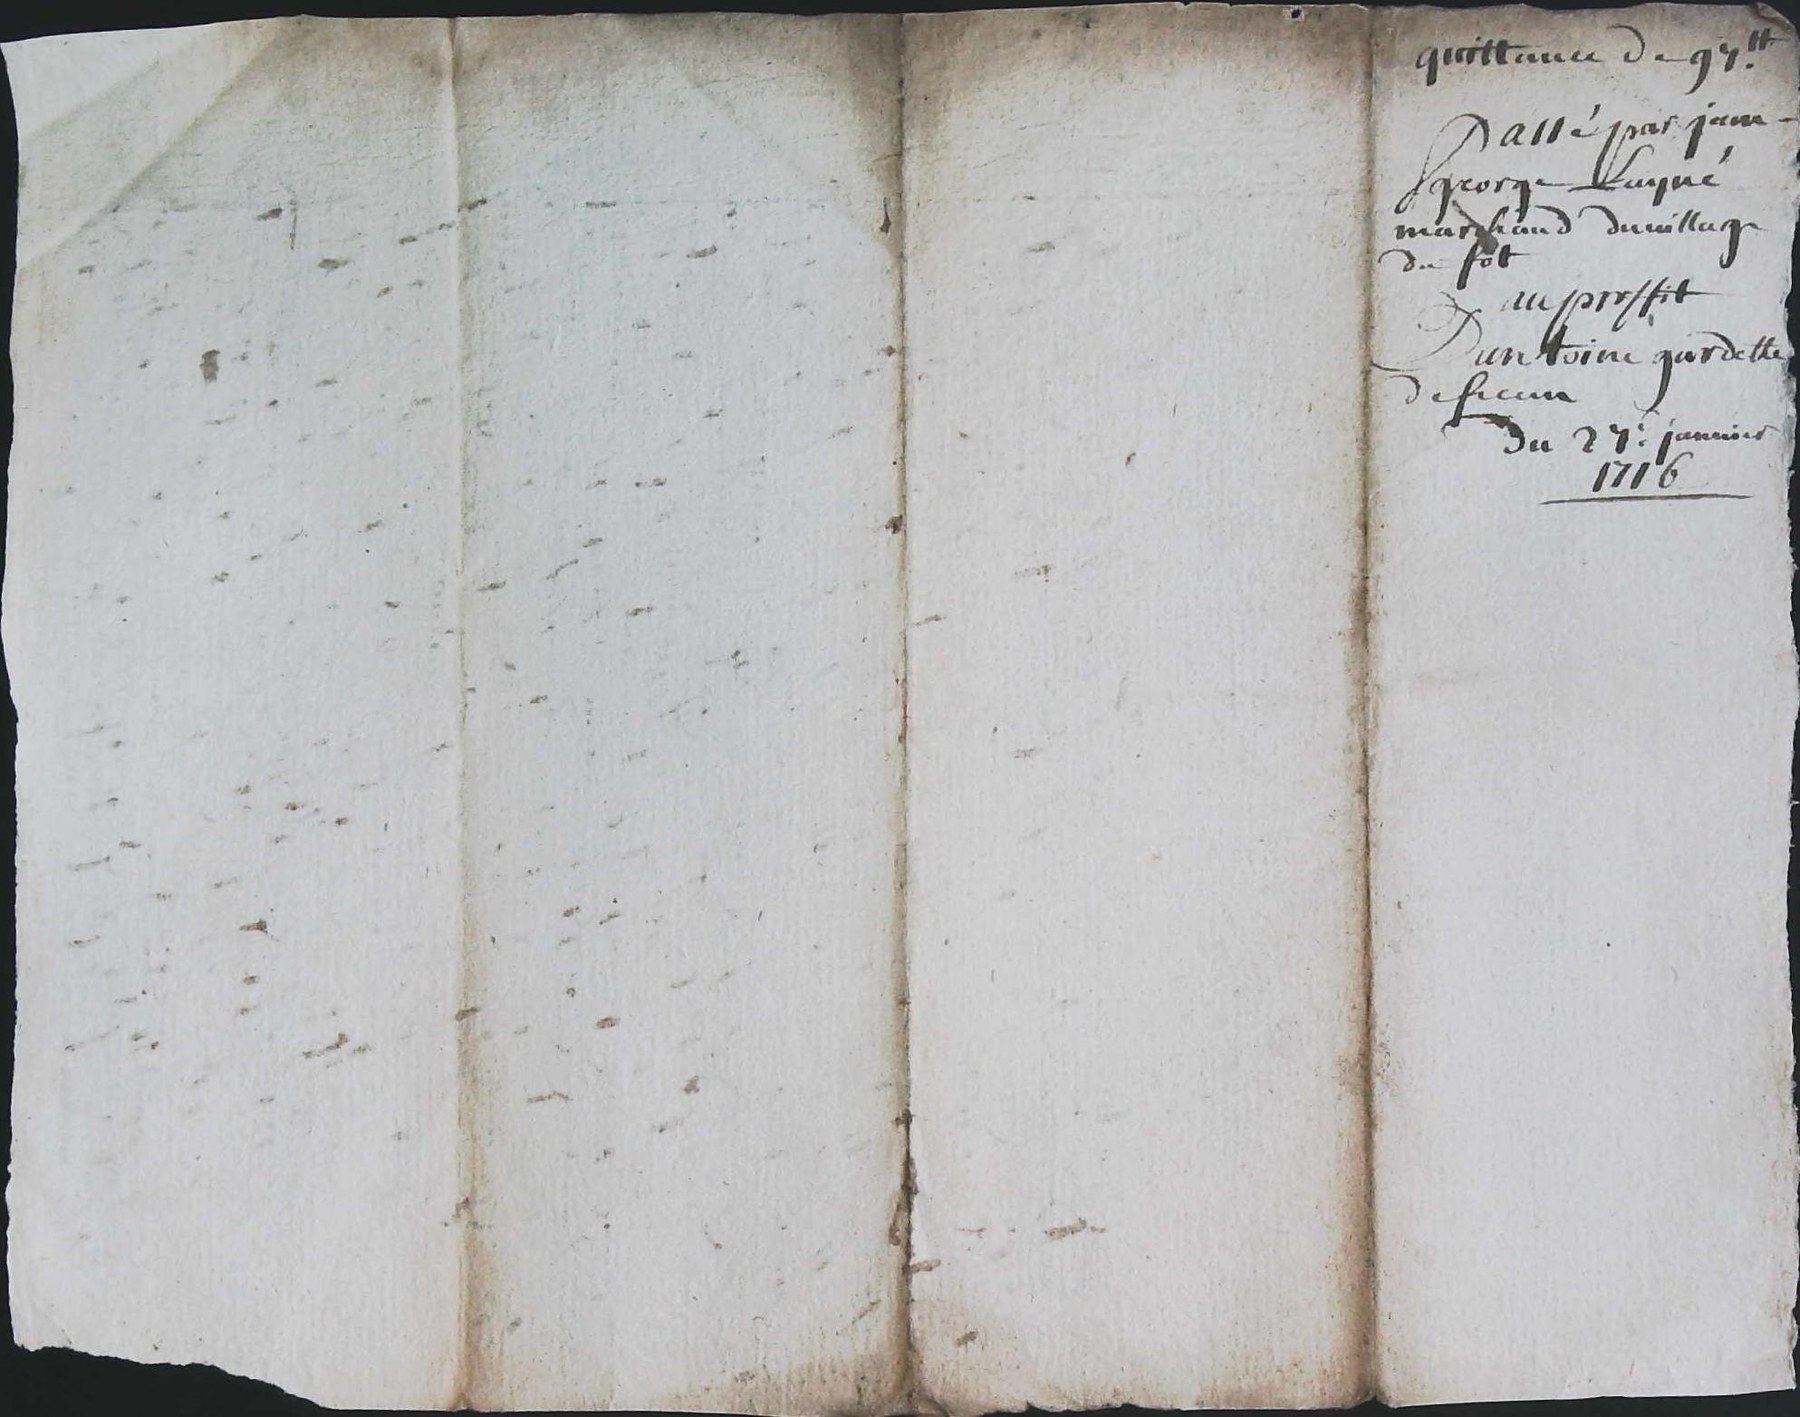 quittance de 97.tt
Passé par jean -
george Layné
marchand du village
du fôt
au proffit
D'antoine gardette
de
Du 27.e janvier
1716